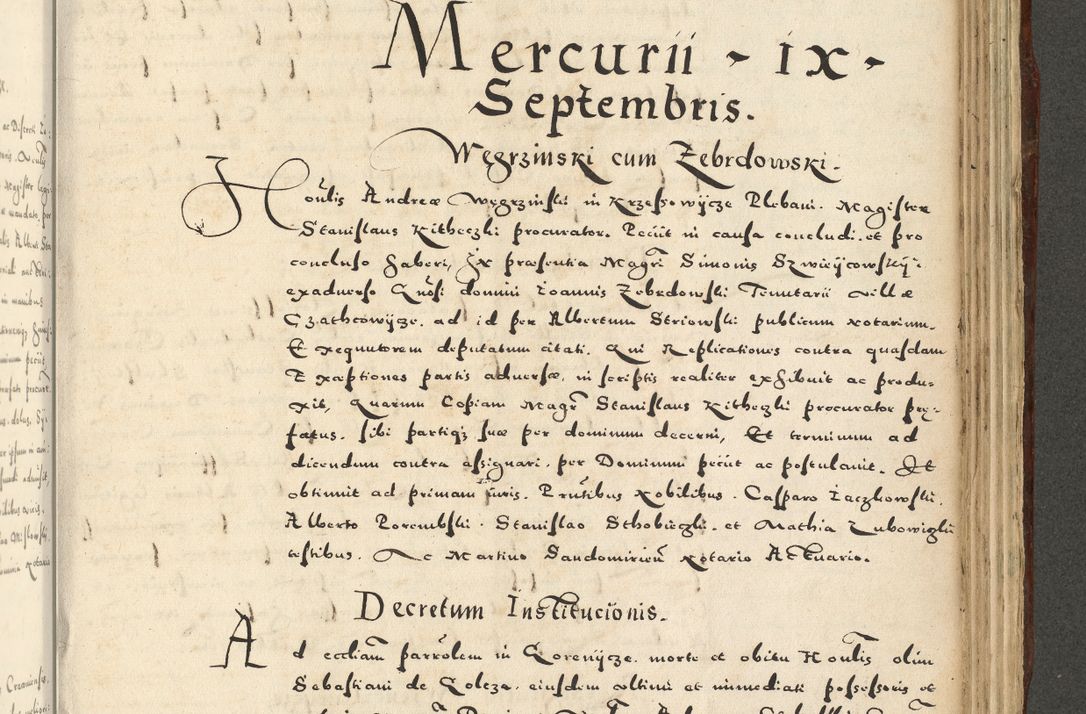 Mercurii - ix -
Septembris.
Węgrzinski cum Zebrdowski.
Honlis Andreæ Węgrzinski in Krzessowycze Plebani. Magister
Stanislaus Kitheczki procurator. Peciit in causa concludi. et pro
concluso haberi, In præsentia Magri Simonis Szwieycowsky:
exaduerso Gnosi domini Ioannis Zebrdowski Tenutarii villæ
Czathcowycze. ad id per Albertum Striowski publicum notarium.
Exequutorem deputatum citati. Qui Replicationes contra quasdam
Exceptiones partis aduersæ, in scriptis realiter exhibuit ac produ-
xit, Quarum Copiam Magr Stanislaus Kitheczki procurator præ-
fatus. sibi partiqz suæ per dominum decerni, Et terminum ad
dicendum contra assignari. per Dominum peciit ac postulauit. Et
obtinuit ad primam iuris. Prntibus Nobilibus. Casparo Iaczkowski.
Alberto Porembski. Stanislao Sthobieczki. et Mathia Lubowizki
testibus. Ac Martino Sandomirien Notario Actuario.
Decretum Institucionis.
Ad eccliam parrolem in Gorenycze. morte et obitu Honlis olim
Sebastiani de Golcza. eiusdem vltimi et immediati possessoris et